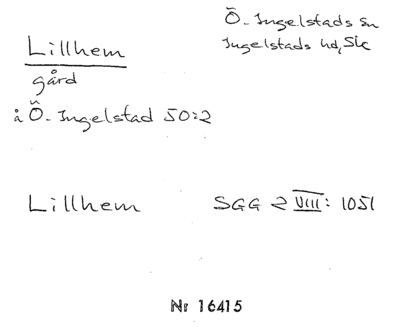 Lillhem
gård
å Ö. Ingelstad 50:2
Ö. Ingelstads sn
Ingelstads hd, Sk
Lillhem SGG 2 VIII: 1051
Nr 16415